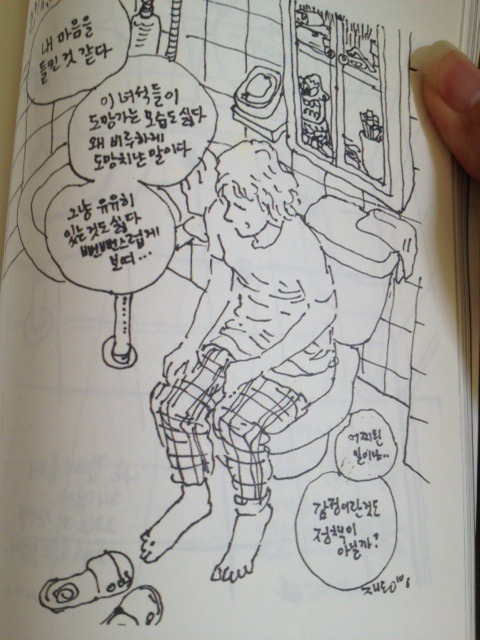 내 마음을
들킨 것 같다
이 녀석들이
도망가는 모습도 싫다
왜 비루하게
도망치난 말이다
그냥 유유히
있는 것도 싫다
뻔뻔스럽게
보여...
어찌된
일이냐..
감정이란 것도
정책이
아닐까?